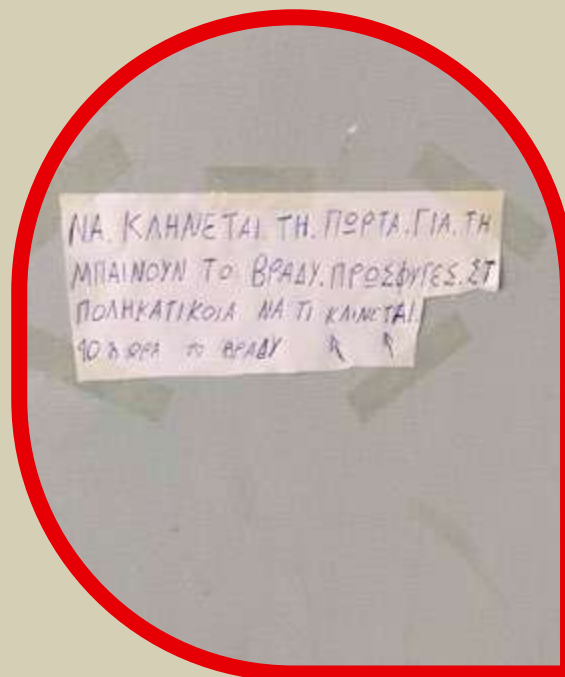 ΝΑ. ΚΛΗΝΕΤΑΙ. ΤΗ. ΠΩΡΤΑ. ΓΙΑ. ΤΗ
ΜΠΑΙΝΟΥΝ ΤΟ ΒΡΑΔΥ. ΠΡΟΣΦΥΓΕΣ. ΣΤ
ΠΟΛΗΚΑΤΙΚΟΙΑ ΝΑ ΤΙ ΚΛΙΝΕΤΑΙ.
ΩΡΑ ΤΟ ΒΡΑΔΥ